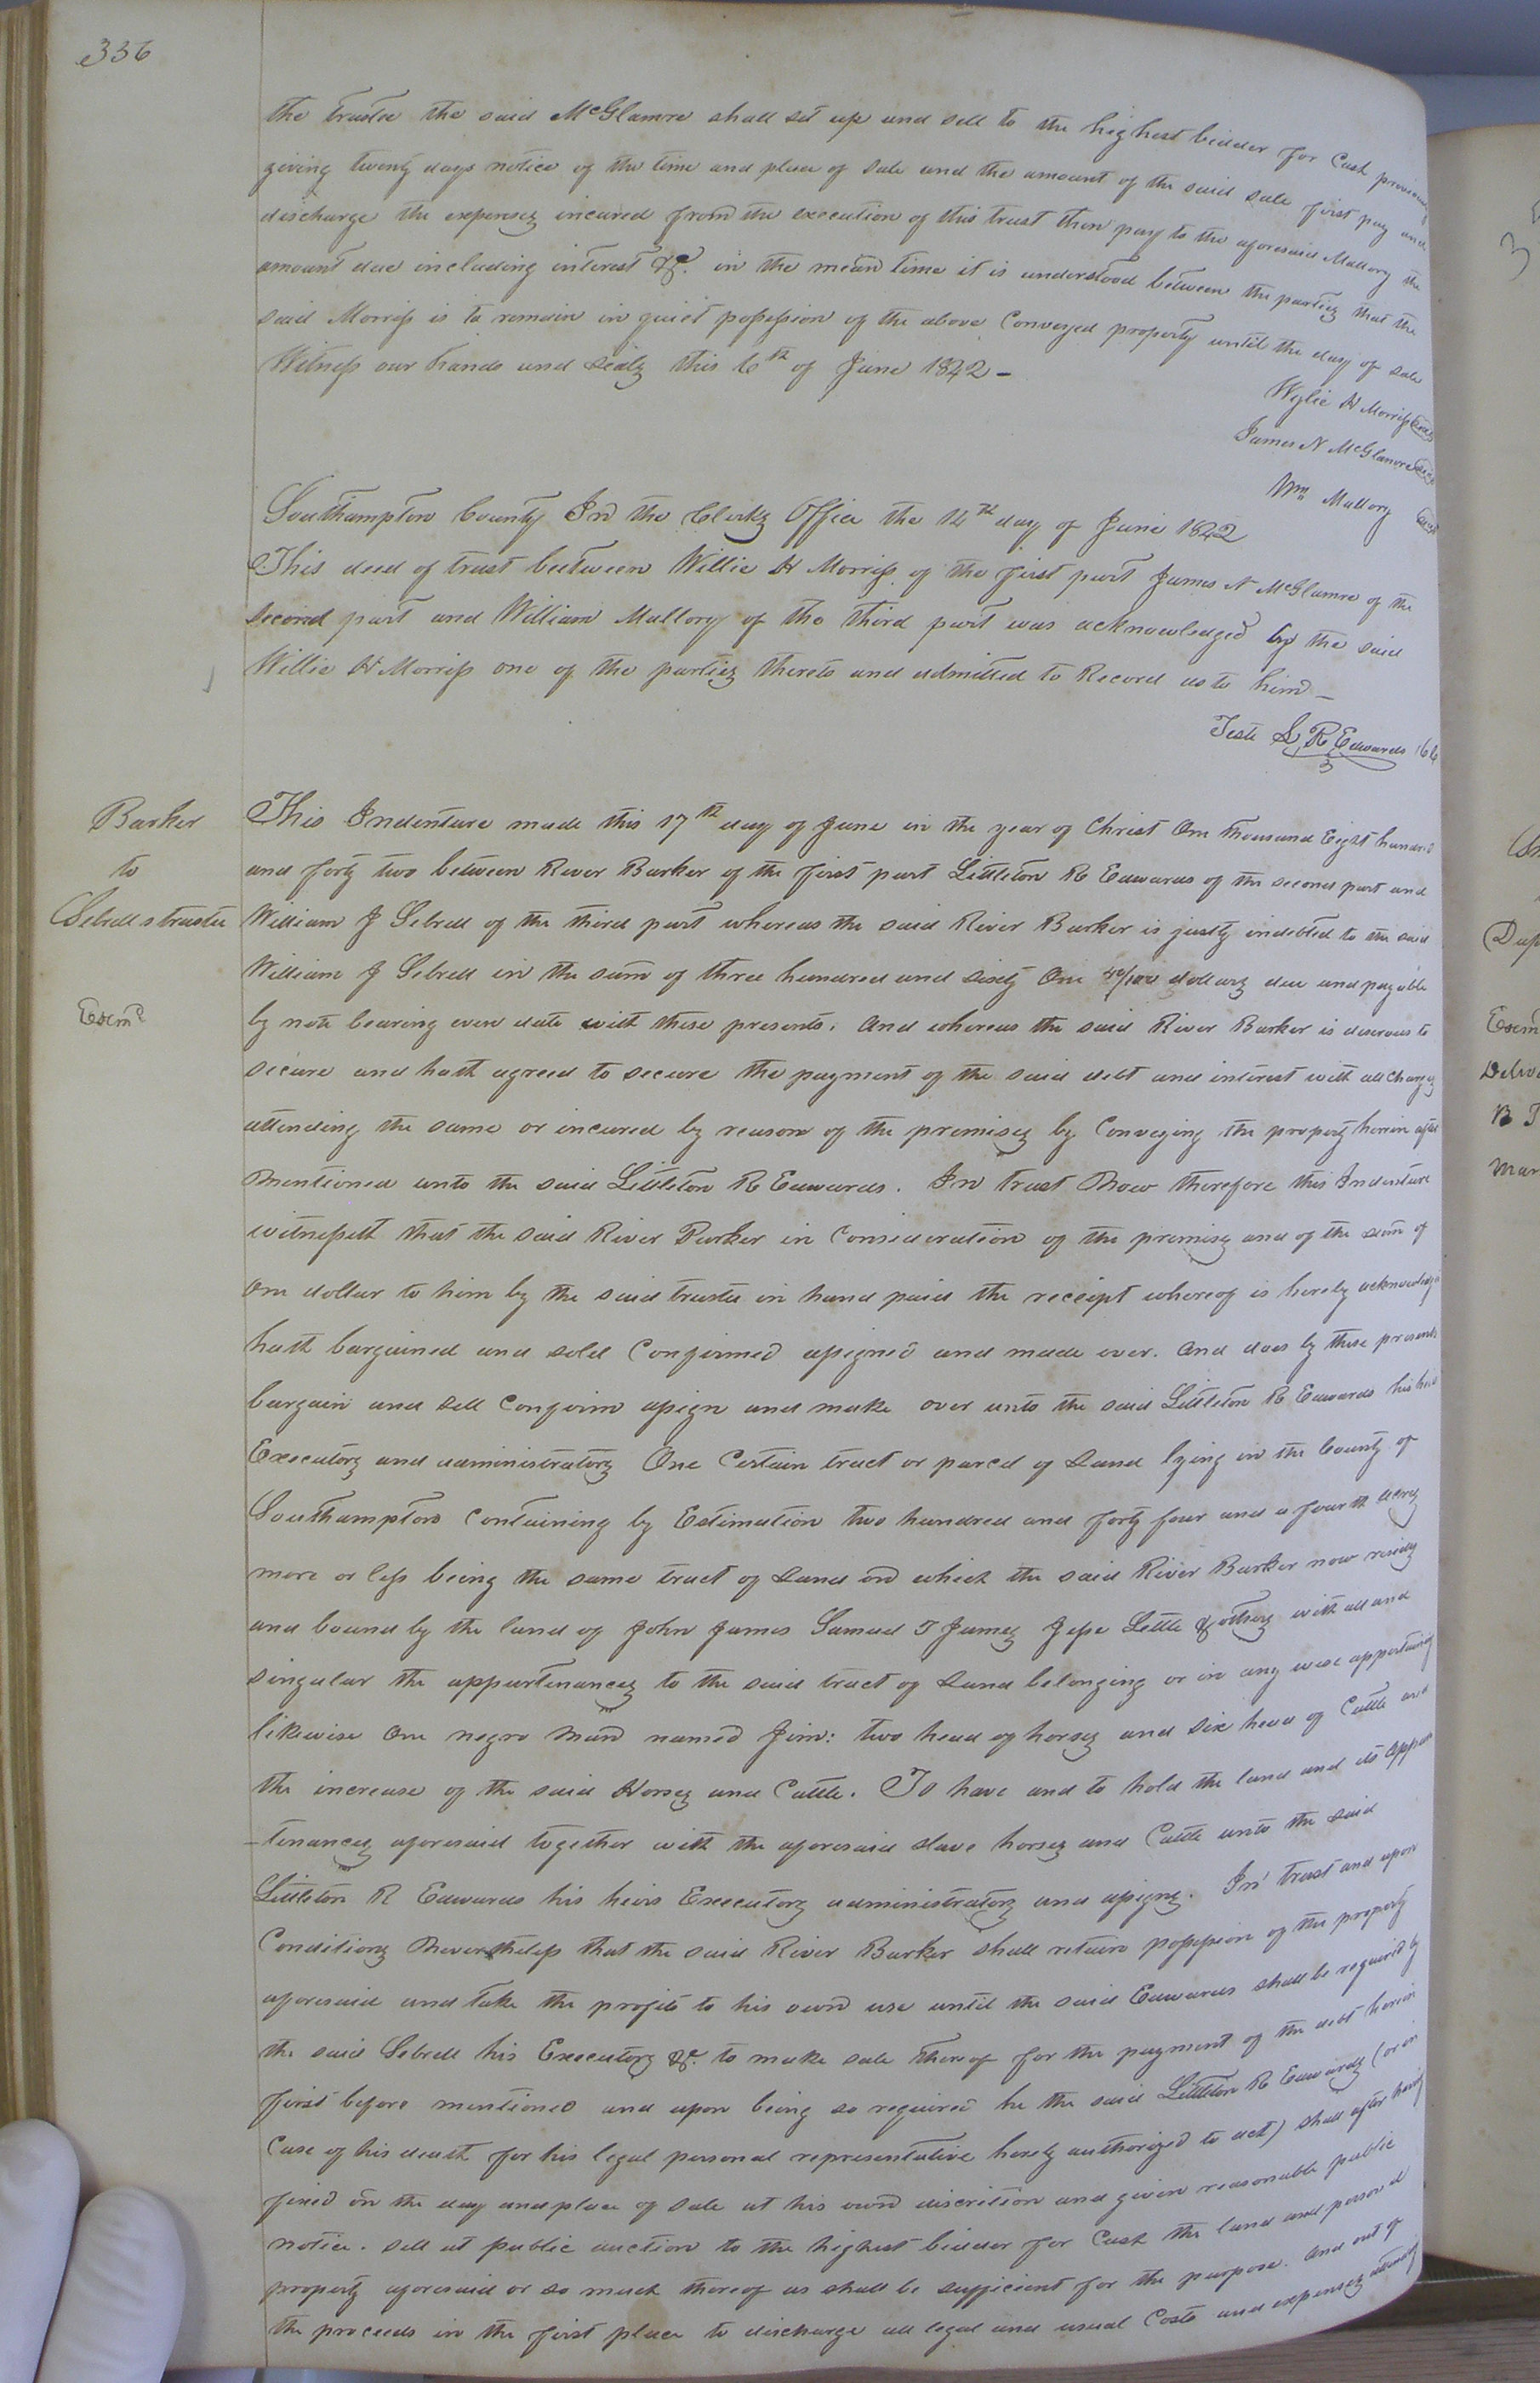 336
the trustee the said McGlamre shall set up and sell to the highest bidder for Cash previously
giving twenty days notice of the time and place of sale and the amount of the said sale first pay and
discharge the expenses incured from the execution of this trust then pay to the aforesaid Mallory the
amount due including interest &c. in the mean time it is understood between the parties that the
said Morriss is to remain in quiet possession of the above Conveyed property until the day of sale
Witness our hands and seals this 6th of June 1842 -
Wylie H Morriss Seal
James N McGlamre Seal
Wm Mallory Seal
Southampton County In the Clerks Office the 14th day of June 1842
This deed of trust between Willie H Morriss of the first part James N McGlamre of the
second part and William Mallory of the third part was acknowledged by the said
Willie H Morriss one of the parties thereto and admitted to Record as to him -
Teste L R Edwards
Barker
to
Sebrells trustee
Exmd
This Indenture made this 17th day of June in the year of Christ One thousand Eight hundred
and forty two between River Barker of the first part Littleton R Edwards of the second part and
William J Sebrell of the third part whereas the said River Barker is justly indebted to the said
William J Sebrell in the sum of three hundred and sixty One /100 dollars due and payable
by note bearing even date with these presents. And whereas the said River Barker is deserous to
secure and hath agreed to secure the payment of the said debt and interest with all charges
attending the same or incured by reason of the premises by Conveying the property herein after
mentioned unto the said Littleton R Edwards. In trust Now therefore this Indenture
witnesseth that the said River Barker in Consideration of the premises and of the sum of
One dollar to him by the said trustee in hand paid the receipt whereof is hereby acknowledged
hath bargained and sold Confirmed assigned and made over. And does by these presents
bargain and sell Confirm assign and make over unto the said Littleton R Edwards his heirs
Executors and administrators One Certain tract or parcel of Land lying in the County of
Southampton Containing by Estimation two hundred and forty four and a fourth acres
more or less being the same tract of Land on which the said River Barker now resides
and bound by the land of John James Samuel T James Jesse Little & others with all and
singular the appurtenances to the said tract of Land belonging or in any wise appertaining
likewise One negro man named Jim: two head of horses and six head of Cattle and
the increase of the said Horses and Cattle. To have and to hold the land and its appur
-tenances aforesaid together with the aforesaid slave horses and Cattle unto the said
Littleton R Edwards his heirs Executors administrators and assigns. In trust and upon
Conditions Nevertheless that the said River Barker shall retain possession of the property
aforesaid and take the profits to his own use until the said Edwards shall be required by
the said Sebrell his Executors &c. to make sale thereof for the payment of the debt herein
first before mentioned and upon being so required he the said Littleton R Edwards (or in
Case of his death for his legal personal representative hereby authorized to act) shall after having
fixed on the day and place of sale at his own discrition and given reasonable public
notice. sell at public auction to the highest bidder for Cash the land and personal
property aforesaid or so much thereof as shall be sufficient for the purpose. And out of
the proceeds in the first place to discharge all legal and usual Costs and expenses attending
Exmd